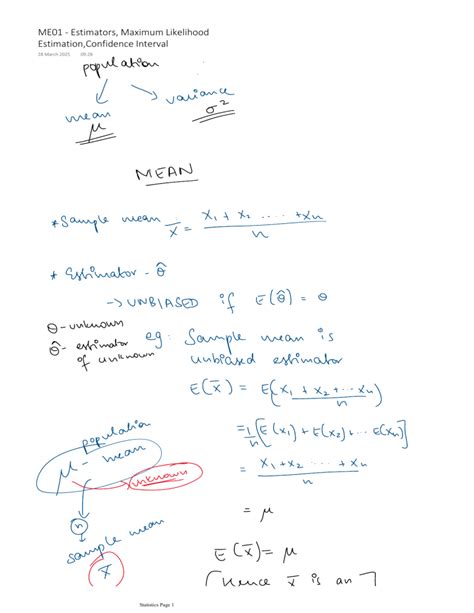 ME01 - Estimators, Maximum Likelihood
Estimation,Confidence Interval
28 March 2025 09:28
population
mean variance
μ σ²
MEAN
* Sample mean x̄ = x₁ + x₂ ..... + xn / n
* Estimator - θ̂
→ UNBIASED if E(θ̂) = θ
θ - unknown
θ̂ - estimator
of unknown
eg: Sample mean is
unbiased estimator
E(x̄) = E(x₁ + x₂ + ... xn) / n
= 1/n [E(x₁) + E(x₂) + ... E(xn)]
= x₁ + x₂ ... + xn / n
= μ
E(x̄) = μ
(Hence x̄ is an
population
μ - mean
unknown
n
sample mean
x̄
Statistics Page 1